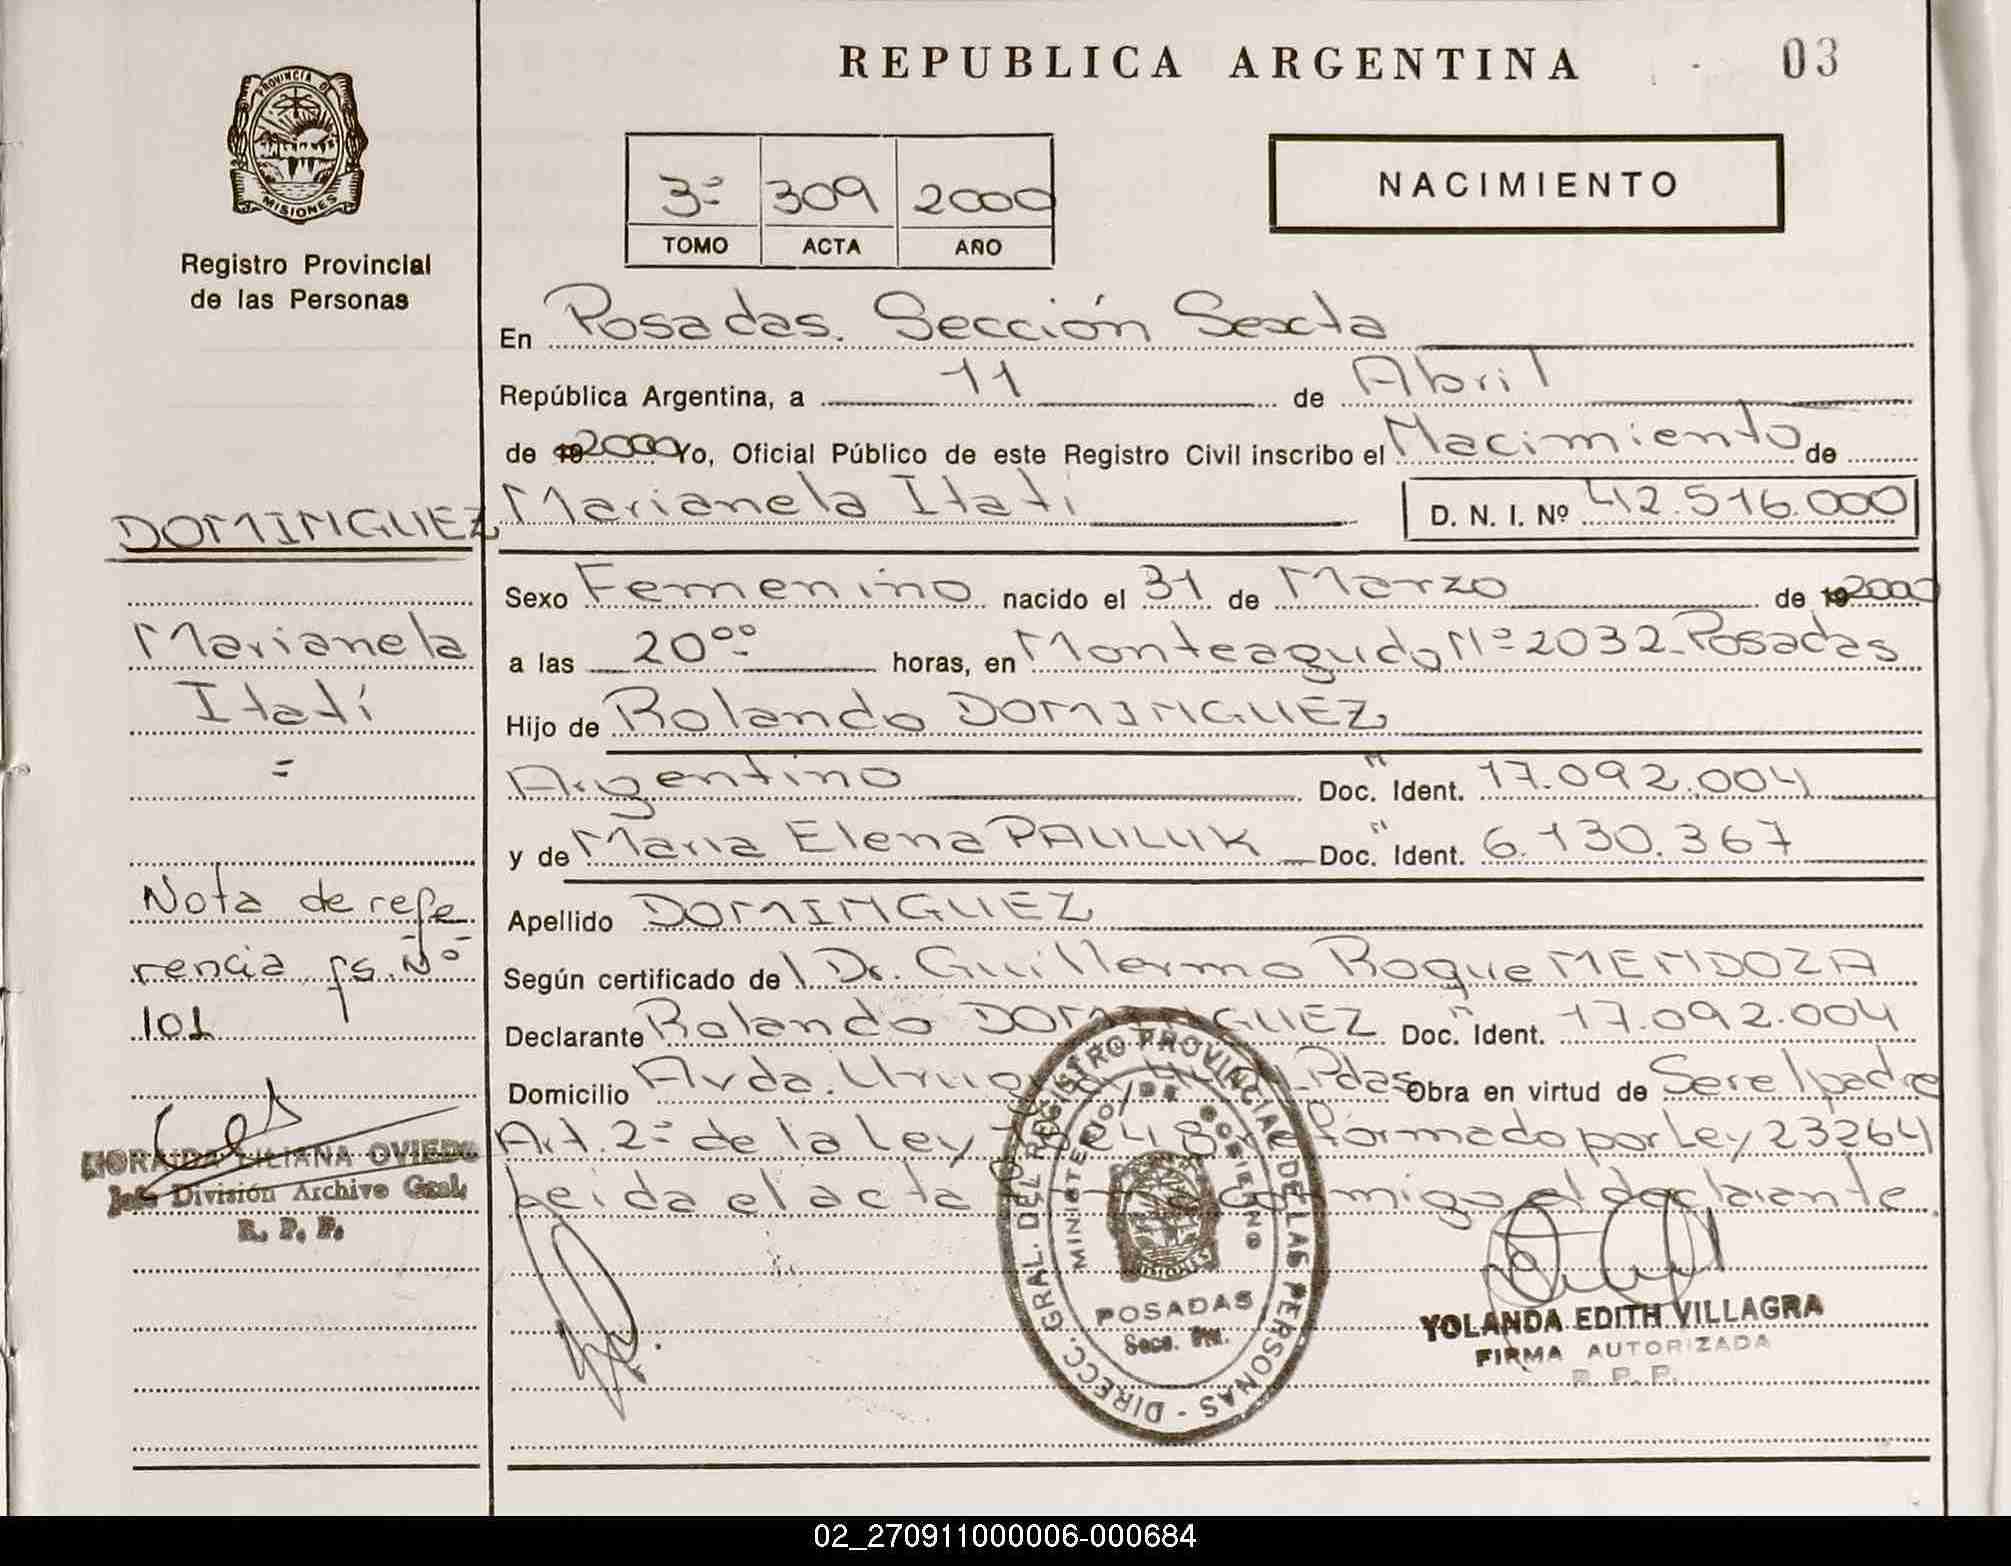 REPUBLICA ARGENTINA
03
PROVINCIA DE
MISIONES
Registro Provincial
de las Personas
3º 309 2000
TOMO ACTA AÑO
NACIMIENTO
En Posadas. Sección Sexta
República Argentina, a 11 de Abril
de 2000 Yo, Oficial Público de este Registro Civil inscribo el Nacimiento de
Marianela Itatí D. N. I. Nº 42.516.000
Sexo Femenino nacido el 31 de Marzo de 2000
a las 20⁰⁰ horas, en Monteagudo Nº 2032. Posadas
Hijo de Rolando DOMINGUEZ
Argentino Doc. Ident. 17.092.004
y de Maria Elena PAULUK Doc. Ident. 6.130.367
Apellido DOMINGUEZ
Según certificado de Dr. Guillermo Roque MENDOZA
Declarante Rolando DOMINGUEZ Doc. Ident. 17.092.004
Domicilio Avda. Pdas Obra en virtud de Ser el padre
Art. 2º de la Ley reformado por Ley 23264
Leida el acta conmigo el declarante.
DIRECC. GRAL. DEL REGISTRO PROVINCIAL DE LAS PERSONAS -
MINISTERIO DE GOBIERNO
MISIONES
POSADAS
Secc.
YOLANDA EDITH VILLAGRA
FIRMA AUTORIZADA
R. P. P.
DOMINGUEZ
Marianela
Itatí
=
Nota de refe
rencia fs. Nº
101
LILIANA OVIEDO
Jefe División Archivo Gral.
R. P. P.
02_270911000006-000684